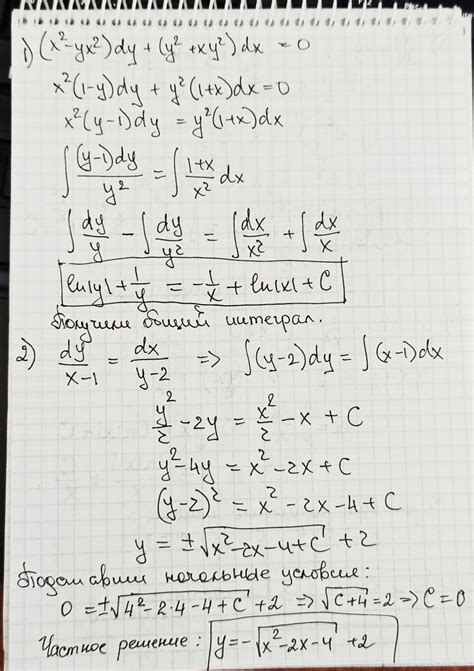 1) (x²-yx²)dy + (y²+xy²)dx = 0
x²(1-y)dy + y²(1+x)dx = 0
x²(y-1)dy = y²(1+x)dx
∫ (y-1)dy/y² = ∫ (1+x)/x² dx
∫ dy/y - ∫ dy/y² = ∫ dx/x² + ∫ dx/x
ln|y| + 1/y = -1/x + ln|x| + C
Получили общий интеграл.
2) dy/(x-1) = dx/(y-2) ⇒ ∫(y-2)dy = ∫(x-1)dx
y²/2 - 2y = x²/2 - x + C
y²-4y = x²-2x+C
(y-2)² = x²-2x-4+C
y = ±√(x²-2x-4+C) + 2
Подставим начальные условия:
0 = ±√(4²-2·4-4+C) + 2 ⇒ √(C+4) = 2 ⇒ C = 0
Частное решение: y = -√(x²-2x-4) + 2